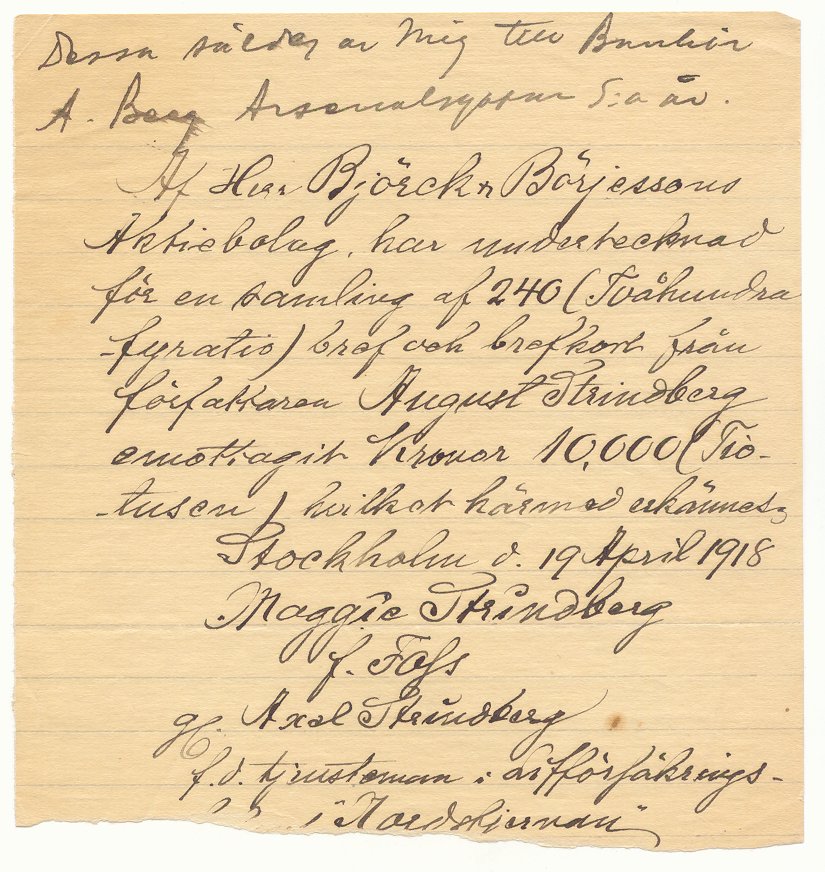 Dessa såldes av Mig till Bankir
A. Berg Arsenalsgatan 5:a av.
Af Herr Björck & Börjessons
Aktiebolag, har undertecknad
för en samling af 240 (Tvåhundra
-fyratio) bref och brefkort från
författaren August Strindberg
emottagit Kronor 10,000 (Tio-
-tusen) hvilket härmed erkännes.
Stockholm d. 19 April 1918
Maggie Strindberg
f. Foss
g. Axel Strindberg
f.d. tjensteman i Lifförsäkrings-
i "Nordstjernan"